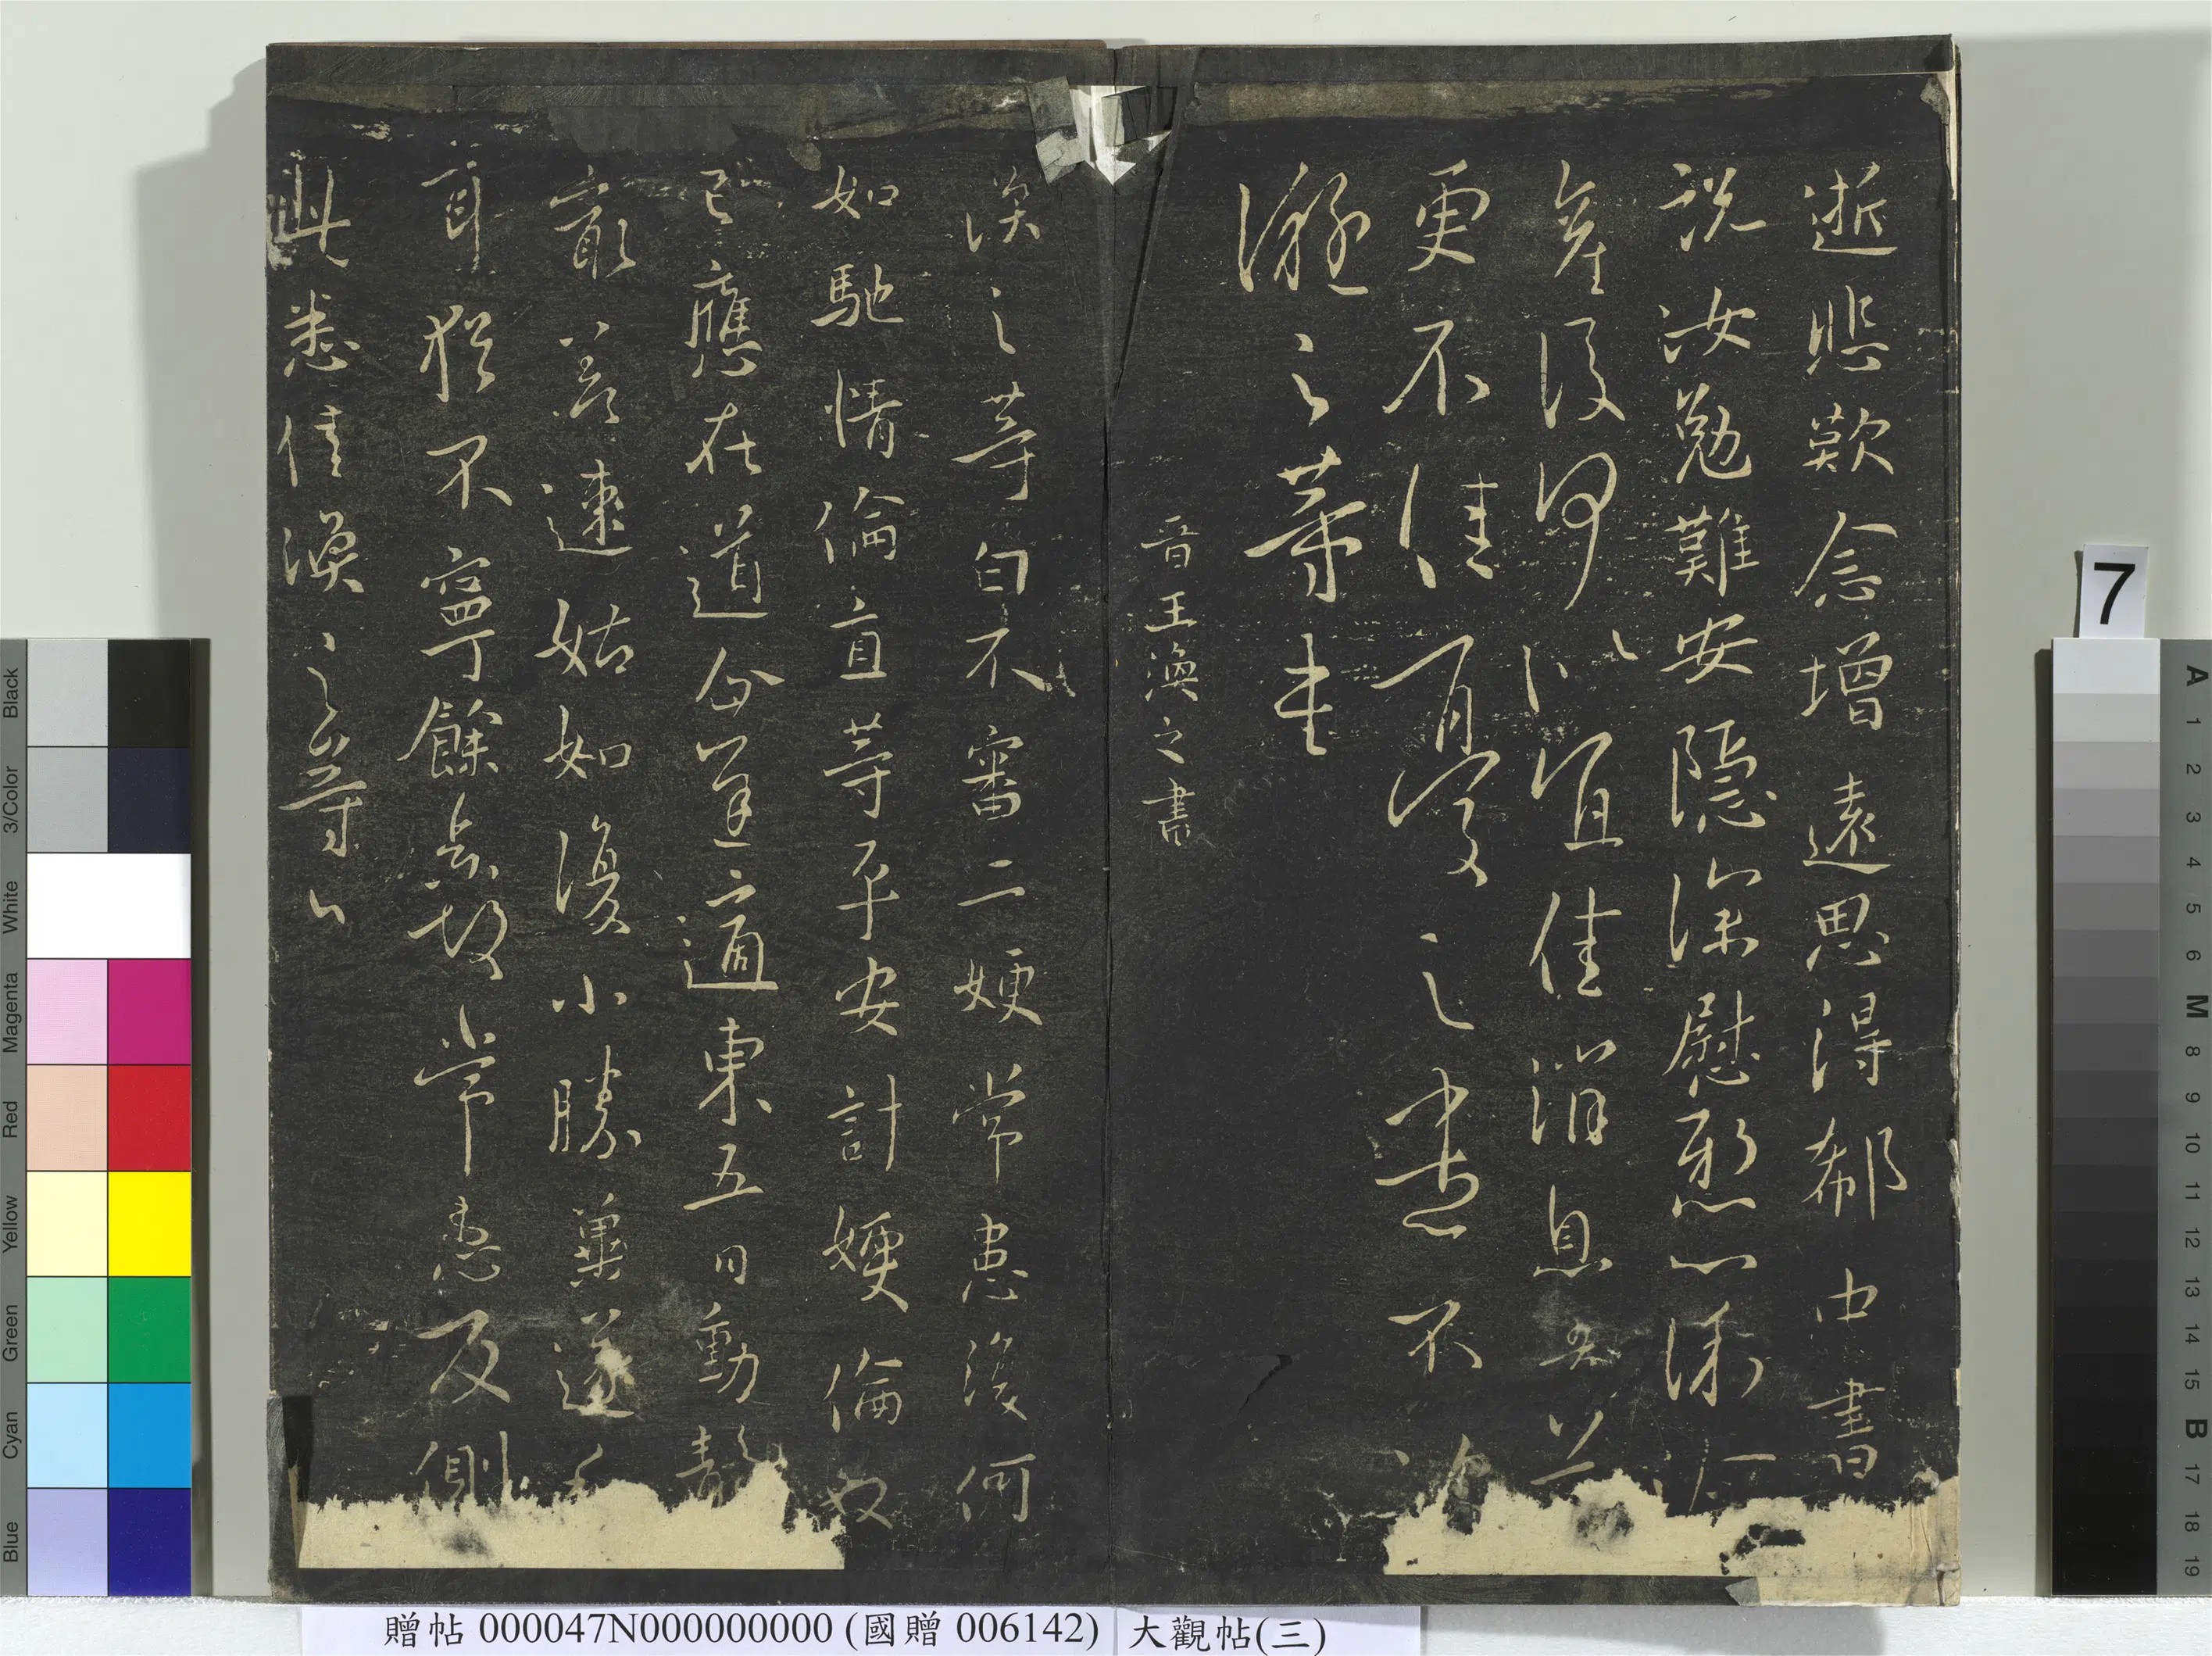 逝悲歎念增遠思得郗中書
說汝勉難安隱深慰懸心深
產後何似宜佳消息吾並
更不佳憂之不
凝之等書
晉王渙之書
渙之等白不審二嫂常患復何
如馳情倫直等平安計嫂倫奴
已應在道企遲適東五日動靜
差速姑如復小勝冀遂
耳猶不寧餘故常患反側
此悉佳渙之等白
7
贈帖 000047N000000000 (國贈 006142) 大觀帖(三)
Blue Cyan Green Yellow Red Magenta White 3/Color Black
A 1 2 3 4 5 6 M 8 9 10 11 12 13 14 15 B 17 18 19